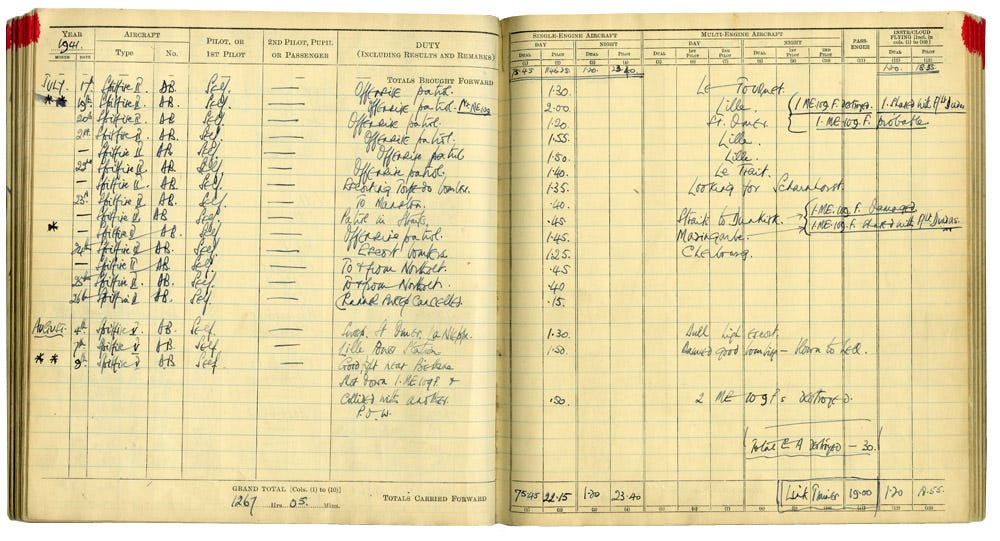 YEAR AIRCRAFT PILOT, OR 1ST PILOT 2ND PILOT, PUPIL OR PASSENGER DUTY (INCLUDING RESULTS AND REMARKS)
1941.
MONTH DATE Type No.
SINGLE-ENGINE AIRCRAFT MULTI-ENGINE AIRCRAFT PASS-ENGER INSTR/CLOUD FLYING [Incl. in cols. (1) to (10)]
DAY NIGHT DAY NIGHT
DUAL PILOT DUAL PILOT DUAL 1ST PILOT 2ND PILOT DUAL 1ST PILOT 2ND PILOT DUAL PILOT
(1) (2) (3) (4) (5) (6) (7) (8) (9) (10) (11) (12) (13)
— — — — — TOTALS BROUGHT FORWARD 75.45 1.20 23.40 1.20 18.55
JULY 17th Spitfire II AB. Self. — Offensive patrol. 1.30 Le Touquet.
** 19th Spitfire II AB. Self. — Offensive patrol. 2.00 Lille. 1 ME 109 F. Destroyed. 1. Shared with F/Lt Dundas
20th Spitfire II AB. Self. — Offensive patrol. 1.20 St. Omer. 1 ME 109 F. probable
21st Spitfire II AB. Self. — Offensive patrol. 1.55 Lille.
— Spitfire II AB. Self. — Offensive patrol 1.50 Lille.
Spitfire II AB. Self. — Offensive patrol. 1.40 Le Trait.
— Spitfire II AB. Self. — Escorting Torpedo bomber. 1.35 Looking for Scharnhorst.
23rd Spitfire II AB. Self. — To Manston. .40
* — Spitfire II AB. Self. — Patrol in Straits. .45 Straits to Dunkirk. 1. ME. 109. F. Damaged. 1. ME. 109. F. Shared with F/Lt Dundas.
— Spitfire II AB. Self. — Offensive patrol. 1.45 Mazingarbe.
24th Spitfire II AB. Self. — Escort bombers. 1.25 Cherbourg.
— Spitfire II AB. Self. — To & from Northolt. .45
25th Spitfire II AB. Self. — To & from Northolt. .40
26th Spitfire II AB. Self. — Cancelled .15.
AUGUST 4th Spitfire V. AB. Self. — St Omer. 1.30 Dull high Escort.
7th Spitfire V AB. Self. — Lille Power Station 1.50 Damned good bombing — blown to hell.
** 9th Spitfire V AB. Self. — Good fight near Bethune
Shot down 1. ME 109 F. &
Collided with another. .50 2 ME 109 F's destroyed.
P.O.W.
Total E A Destroyed — 30.
GRAND TOTAL [Cols. (1) to (10)]
1267 Hrs. 05. Mins. TOTALS CARRIED FORWARD 75.45 22.15 1.20 23.40 Link Trainer 19.00 1.20 18.55.
(1) (2) (3) (4) (5) (6) (7) (8) (9) (10) (11) (12) (13)